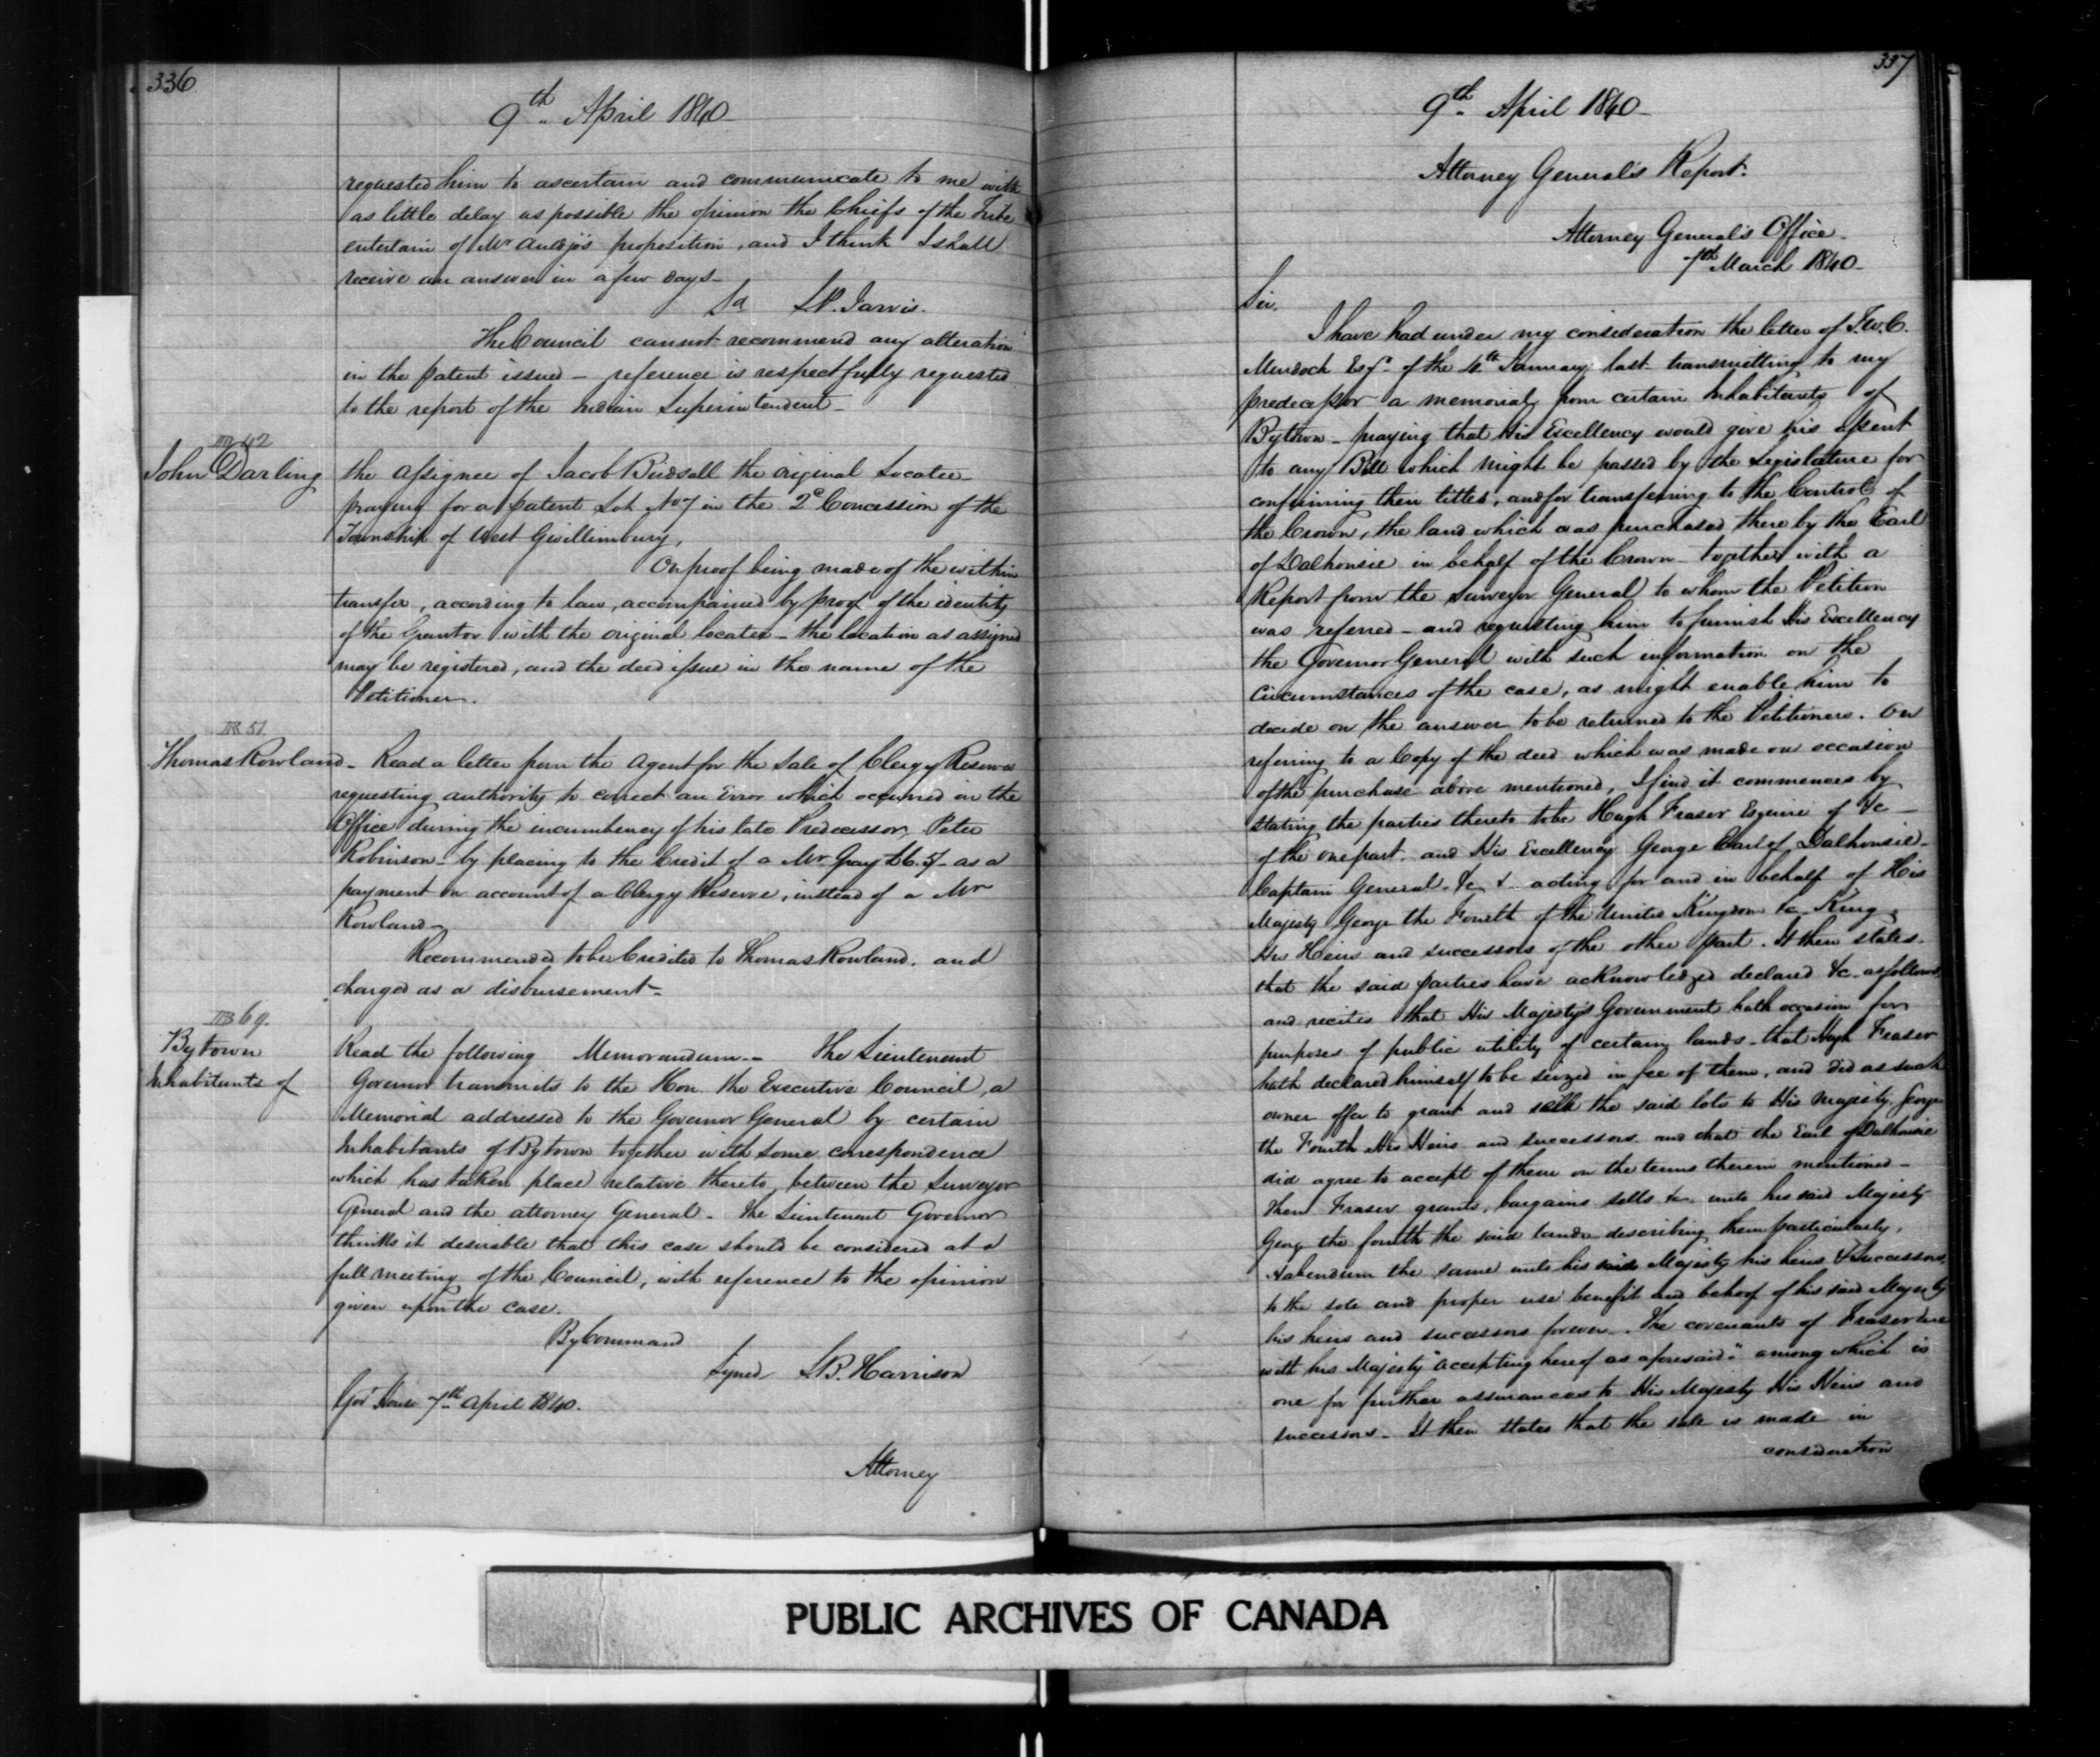 336
9th April 1840
requested him to ascertain and communicate to me with
as little delay as possible the opinion the Chiefs of the Tribe
entertain of Mr Auldjo's proposition, and I think I shall
receive an answer in a few days
Sd S.P. Jarvis.
The Council cannot recommend any alteration
in the patent issued - reference is respectfully requested
to the report of the Indian Superintendent -
42
John Darling
the assignee of Jacob Birdsall the original Locatee
praying for a patent Lot No 7 in the 2d Concession of the
Township of West Gwillimbury,
On proof being made of the within
transfer, according to law, accompanied by proof of the identity
of the Grantor with the original locatee - the location as assigned
may be registered, and the deed issue in the name of the
Petitioner.
51
Thomas Rowland - Read a letter from the Agent for the Sale of Clergy Reserves
requesting authority to correct an Error which occurred in the
Office during the incumbency of his late Predecessor, Peter
Robinson - by placing to the Credit of a Mr Gray £6.5 - as a
payment on account of a Clergy Reserve, instead of a Mr
Rowland -
Recommended to be Credited to Thomas Rowland, and
charged as a disbursement -
69.
Bytown
Inhabitants of
Read the following Memorandum - The Lieutenant
Governor transmits to the Hon. the Executive Council, a
Memorial addressed to the Governor General by certain
Inhabitants of Bytown together with some correspondence
which has taken place relative thereto, between the Surveyor
General and the Attorney General - The Lieutenant Governor
thinks it desirable that this case should be considered at a
full meeting of the Council, with reference to the opinion
given upon the case.
By Command
Signed S.B. Harrison
Govt House 7th April 1840.
Attorney
337
9th April 1840
Attorney General's Report.
Attorney General's Office
7th March 1840
Sir.
I have had under my consideration the letter of T.W.C.
Murdoch Esqr of the 4th January last transmitting to my
predecessor a memorial from certain Inhabitants of
Bytown - praying that His Excellency would give his assent
to any Bill which might be passed by the Legislature for
confirming their titles, and for transferring to the Control of
the Crown, the land which was purchased there by the Earl
of Dalhousie in behalf of the Crown - together with a
Report from the Surveyor General to whom the Petition
was referred - and requesting him to furnish His Excellency
the Governor General with such information on the
Circumstances of the case, as might enable him to
decide on the answer to be returned to the Petitioners. On
referring to a Copy of the deed which was made on occasion
of the purchase above mentioned, I find it commences by
stating the parties thereto to be Hugh Fraser Esquire of &c -
of the one part, and His Excellency George Earl of Dalhousie -
Captain General - &c & - acting for and in behalf of His
Majesty George the Fourth of the United Kingdom &c King,
His Heirs and successors of the other part. It then states
that the said parties have acknowledged declared &c - as follows,
and recites that His Majesty's Government hath occasion for
purposes of public utility of certain lands - that Hugh Fraser
hath declared himself to be seized in fee of them, and did as such
owner offer to grant and sell the said lots to His Majesty George
the Fourth His Heirs and successors and that the Earl of Dalhousie
did agree to accept of them on the terms therein mentioned -
Then Fraser grants, bargains sells &c unto his said Majesty
George the fourth the said lands describing them particularly,
Habendum the same unto his said Majesty his heirs & Successors
to the sole and proper use benefit and behoof of his said Majesty
his heirs and successors forever. The covenants of Fraser are
with his Majesty "accepting hereof as aforesaid" among which is
one for further assurances to His Majesty His Heirs and
successors - It then states that the sale is made in
consideration
PUBLIC ARCHIVES OF CANADA